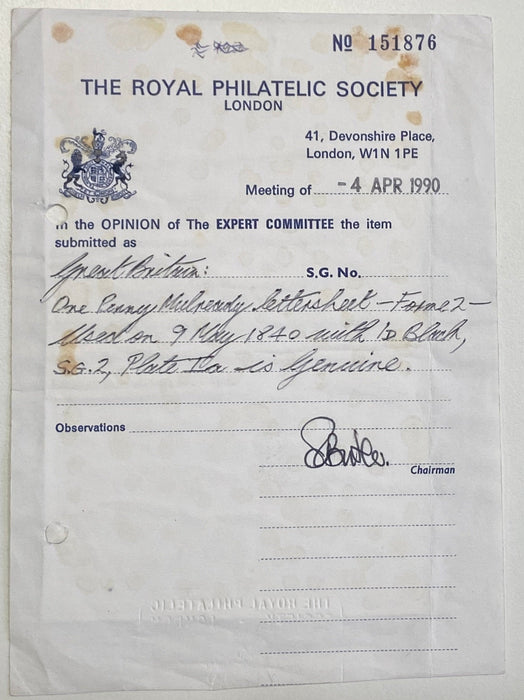 Nº 151876
THE ROYAL PHILATELIC SOCIETY
LONDON
41, Devonshire Place,
London, W1N 1PE
Meeting of - 4 APR 1990
In the OPINION of The EXPERT COMMITTEE the item
submitted as
Great Britain: S.G. No.
One Penny Mulready lettersheet - Forme 2 -
Used on 9 May 1840 with 1D Black,
S.G.2, Plate Ia is Genuine.
Observations
Chairman
THE ROYAL PHILATELIC
SOCIETY
LONDON